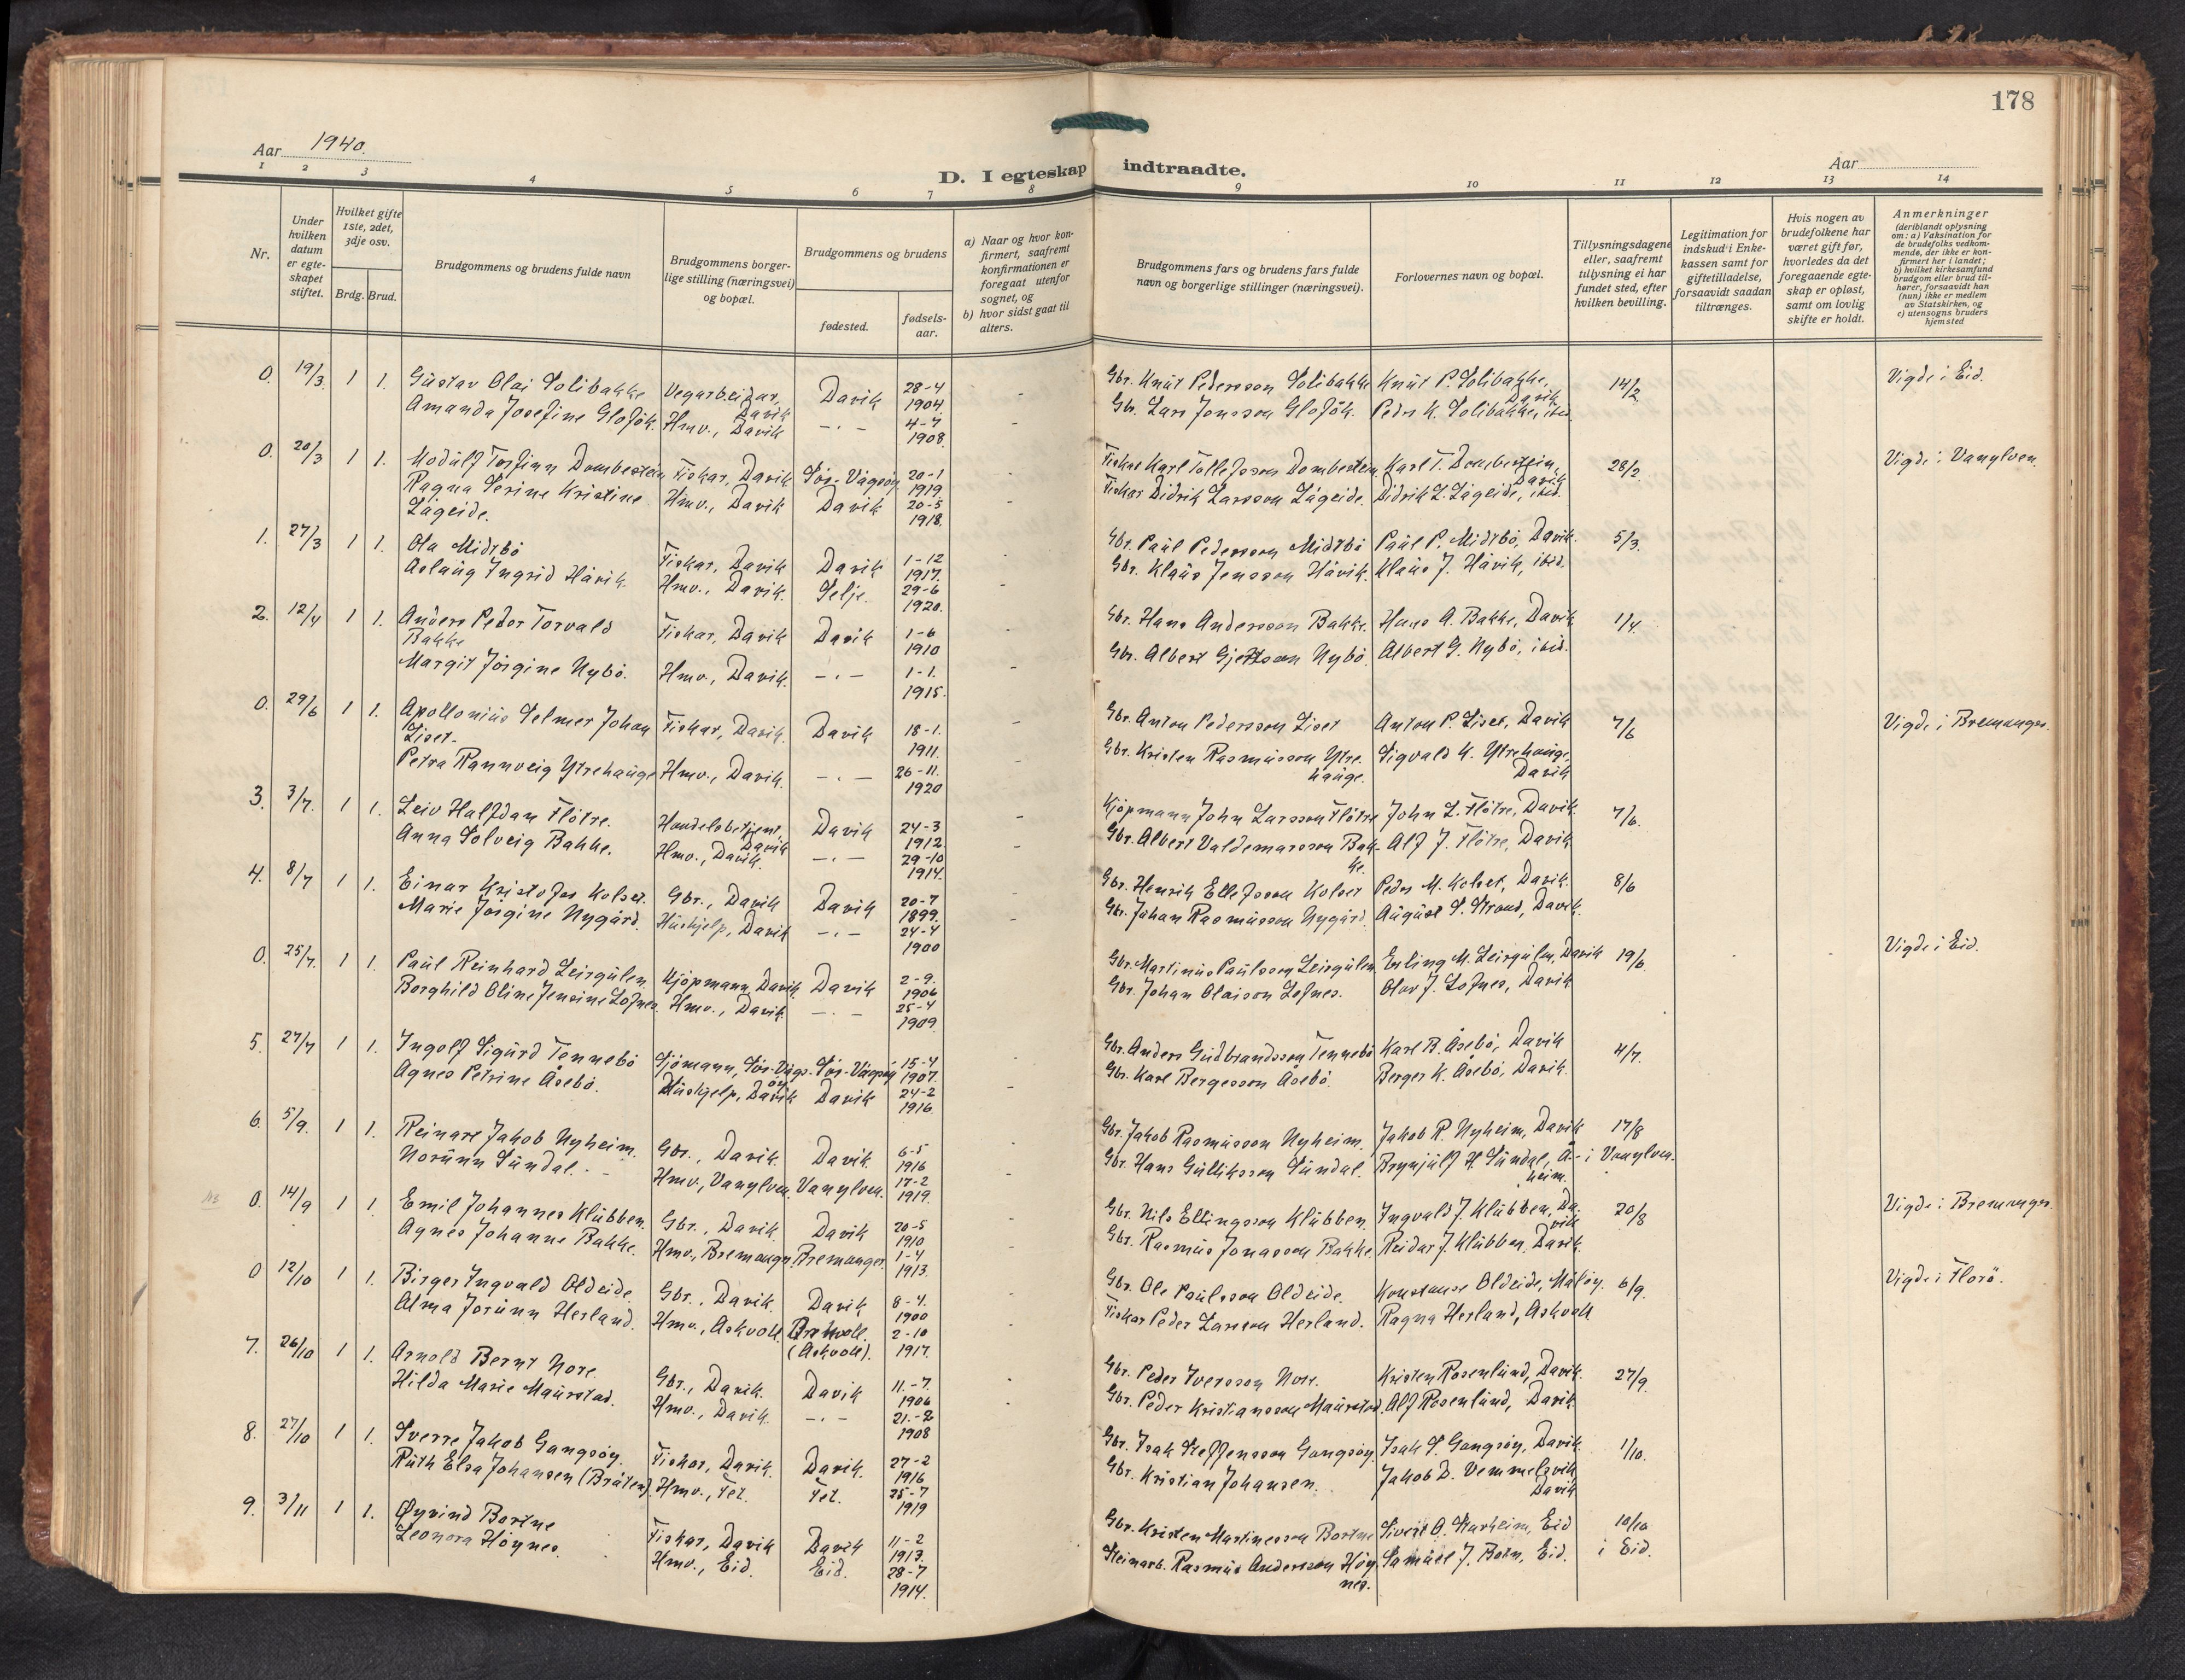 178
Aar 1940.
Aar
D. I egteskap indtraadte.
1 2 3 4 5 6 7 8 9 10 11 12 13 14
Nr.
Under hvilken datum er egteskapet stiftet.
Hvilket gifte 1ste, 2det, 3dje osv.
Brdg. Brud.
Brudgommens og brudens fulde navn
Brudgommens borgerlige stilling (næringsvei) og bopæl.
Brudgommens og brudens
fødested.
fødselsaar.
a) Naar og hvor konfirmert, saafremt konfirmationen er foregaat utenfor sognet, og
b) hvor sidst gaat til alters.
Brudgommens fars og brudens fars fulde navn og borgerlige stillinger (næringsvei).
Forlovernes navn og bopæl.
Tillysningsdagene eller, saafremt tillysning ei har fundet sted, efter hvilken bevilling.
Legitimation for indskud i Enkekassen samt for giftetilladelse, forsaavidt saadan tiltrænges.
Hvis nogen av brudefolkene har været gift før, hvorledes da det foregaaende egteskap er opløst, samt om lovlig skifte er holdt.
Anmerkninger (deriblandt oplysning om: a) Vaksination for de brudefolks vedkommende, der ikke er konfirmert her i landet; b) hvilket kirkesamfund brudgom eller brud tilhører, forsaavidt han (hun) ikke er medlem av Statskirken, og c) utensogns bruders hjemsted
0. 19/3 1 1. Gustav Olai Solibakke Vegarbeidar, Davik Davik 28-4 1904. Gbr. Knut Pedersson Solibakke Knut P. Solibakke, Davik 14/2 Vigde i Eid.
Amanda Josefine Glofök. Hmv., Davik -.- 4-7 1908. Gbr. Lars Jonsson Glofök. Peder K. Solibakke, ibid.
0. 20/3 1 1. Modulf Torfinn Dombestein Fiskar, Davik Sør-Vågsøy 20-1 1919 Fiskar Karl Tollefsson Dombestein Karl T. Dombestein, Davik 28/2. Vigde i Vanylven.
Ragna Serine Kristine Lågeide. Hmv., Davik Davik 20-5 1918. Fiskar Didrik Larsson Lågeide. Didrik L. Lågeide, ibid.
1. 27/3 1 1. Ola Midtbö Fiskar, Davik Davik 1-12 1917. Gbr. Paul Pedersson Midtbö Paul P. Midtbö, Davik. 5/3.
Aslaug Ingrid Håvik. Hmv., Davik. Selje. 29-6 1920. Gbr. Klaus Jensson Håvik. Klaus J. Håvik, ibid.
2. 12/4 1 1. Anders Peder Torvald Bakke Fiskar, Davik Davik 1-6 1910 Gbr. Hans Andersson Bakke. Hans A. Bakke, Davik 1/4.
Margit Jörgine Nybö. Hmv., Davik. -.- 1-1. 1915. Gbr. Albert Gjertsson Nybö. Albert G. Nybö, ibid.
0. 29/6 1 1. Apollonius Selmer Johan Liset. Fiskar, Davik. Davik 18-1. 1911. Gbr. Anton Pedersson Liset Anton P. Liset, Davik 7/6 Vigde i Bremanger.
Petra Rannveig Ytrehauge Hmv., Davik. -.- 26-11. 1920 Gbr. Kristen Rasmusson Ytrehauge. Sigvald K. Ytrehauge, Davik
3. 3/7. 1 1. Leiv Halfdan Flötre. Handelsbetjent, Davik Davik 24-3 1912. Kjöpmann John Larsson Flötre John L. Flötre, Davik. 7/6.
Anna Solveig Bakke. Hmv., Davik. -.- 29-10 1914. Gbr. Albert Valdemarsson Bakke. Alf J. Flötre, Davik
4. 8/7 1 1. Einar Kristofer Kolset. Gbr., Davik Davik 20-7 1899. Gbr. Henrik Ellefsson Kolset Peder M. Kolset, Davik. 8/6
Marie Jörgine Nygård. Hushjelp, Davik -.- 24-4 1900 Gbr. Johan Rasmusson Nygård. August S. Strand, Davik.
0. 25/7. 1 1. Paul Reinhard Leirgulen. Kjöpmann, Davik. Davik 2-9. 1906 Gbr. Martinus Paulsson Leirgulen. Erling M. Leirgulen, Davik 19/6. Vigde i Eid.
Borghild Oline Jensine Lofnes. Hmv., Davik. -.- 25-4 1909. Gbr. Johan Olaison Lofnes. Olav J. Lofnes, Davik
5. 27/7 1 1. Ingolf Sigurd Tennebö Sjömann, Sör-Vågsöy Sör-Vågsöy 15-4 1907. Gbr. Anders Gudbrandsson Tennebö Karl B. Åsebö, Davik 4/7.
Agnes Petrine Åsebö. Hushjelp, Davik Davik 24-2 1916. Gbr. Karl Bergesson Åsebö. Berger K. Åsebö, Davik.
6. 5/9. 1 1. Reinart Jakob Nyheim. Gbr., Davik. Davik. 6-5 1916 Gbr. Jakob Rasmusson Nyheim. Jakob R. Nyheim, Davik 17/8
Norunn Sundal. Hmv., Vanylven. Vanylven. 17-2 1919. Gbr. Hans Gulliksson Sundal. Brynjulf H. Sundal, Åheim. i Vanylven.
0. 14/9 1 1. Emil Johannes Klubben. Gbr., Davik Davik 20-5 1910 Gbr. Nils Ellingsson Klubben. Ingvald J. Klubben, Davik 20/8 Vigde i Bremanger.
Agnes Johanne Bakke. Hmv., Bremanger. Bremanger. 1-4 1913. Gbr. Rasmus Jonasson Bakke. Reidar J. Klubben, Davik.
0 12/10 1 1. Birger Ingvald Oldeide. Gbr., Davik. Davik 8-4. 1900 Gbr. Ole Paulsson Oldeide. Konstanse Oldeide, Måløy. 6/9. Vigde i Florö.
Alma Jorunn Herland. Hmv., Askvoll. (Askvoll). 2-10 1917. Fiskar Peder Larsson Herland. Ragna Herland, Askvoll
7. 26/10 1 1. Arnold Bernt Nore. Gbr., Davik. Davik 11.-7. 1906 Gbr. Peder Iversson Nore. Kristen Rosenlund, Davik. 27/9.
Hilda Marie Maurstad. Hmv., Davik. -.- 21.-2 1908 Gbr. Peder Kristiansson Maurstad. Alf Rosenlund, Davik
8. 27/10 1 1. Sverre Jakob Gangsöy. Fiskar, Davik. Davik. 27-2 1916 Gbr. Isak Steffensson Gangsöy. Isak S. Gangsöy, Davik 1/10.
Ruth Elsa Johansen (Bråten). Hmv., Fet. Fet. 25-7 1919 Gbr. Kristian Johansen. Jakob D. Vemmelsvik, Davik
9. 3/11 1 1. Øyvind Bortne Fiskar, Davik Davik 11-2 1913. Gbr. Kristen Martinesson Bortne Sivert O. Starheim, Eid 10/10
Leonora Höynes. Hmv., Eid. Eid. 28-7 1914. Steinarb. Rasmus Andersson Höynes. Samuel J. Botn, Eid. i Eid.